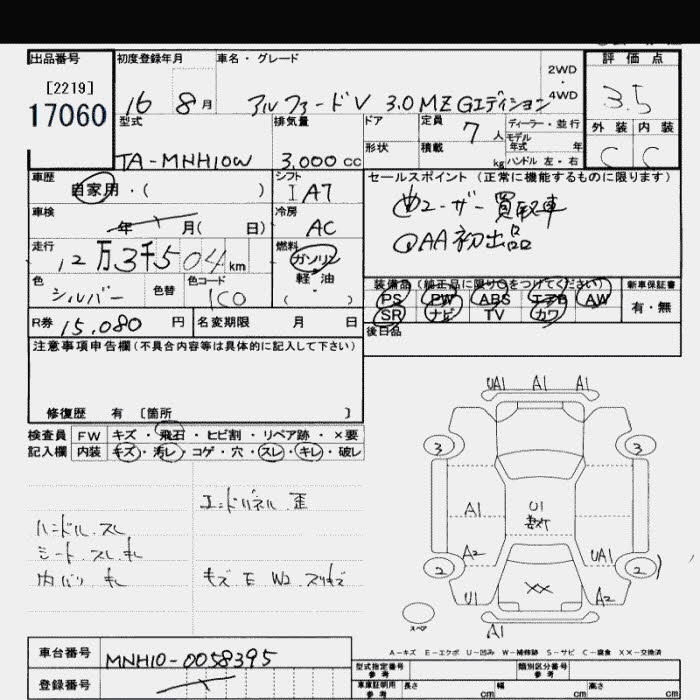 出品番号
[2219]
17060
初度登録年月
16 8月
車名・グレード
アルファードV 3.0 MZ Gエディション
2WD
・
4WD
評価点
3.5
外装 内装
C C
型式
TA-MNH10W
排気量
3,000 cc
ドア
定員 7人
ディーラー・並行
モデル
年式 年
形状
積載 kg
ハンドル 左・右
車歴
自家用・( )
シフト
I A7
セールスポイント(正常に機能するものに限ります)
①ユーザー買取車
○AA初出品
車検
年 月( 日)
冷房
AC
走行
12万3千504km
燃料
ガソリン
軽・油
( ・ )
色
シルバー
色替
色コード
1C0
装備品(純正品に限り○をつけてください)
PS PW ABS エアB AW
SR ナビ TV カワ
新車保証書
有・無
R券 15.080円
名変期限 月 日
後日品
注意事項申告欄(不具合内容等は具体的に記入して下さい)
修復歴 有 〔箇所 〕
検査員
記入欄
FW キズ・飛石・ヒビ割・リペア跡・×要
内装 キズ・汚レ・コゲ・穴・スレ・キレ・破レ
エンドパネル.歪
ハンドル.スレ
シート.スレ.キレ
内バリ キレ
キズ E W2 スリキズ
UA1 A1 A1
3 3
A1
U1
A2
UA1
2 2
XX
U1
A2
A1
スペア
A-キズ E-エクボ U-凹み W-補修跡 S-サビ C-腐食 XX-交換済
車台番号
MNH10-0058395
登録番号
型式指定番号
参考
類別区分番号
参考
車庫証明用
参考
長さ cm
幅 cm
高さ cm